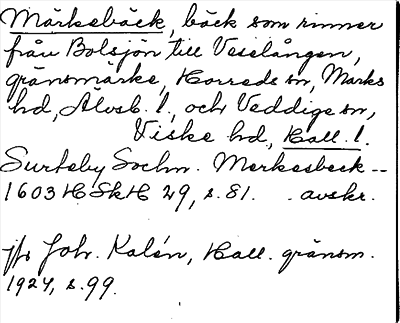 Märkebäck, bäck som rinner
från Bolsjön till Veselången,
gränsmärke, Horreds sn, Marks
hd, Älvsb. l., och Veddige sn,
Viske hd, Hall. l.
Surteby Sochn. Merkesbeck --
1603 H Sk H 29, s. 81. avskr.
jfr Joh. Kalén, Hall. gränsm.
1924, s. 99.